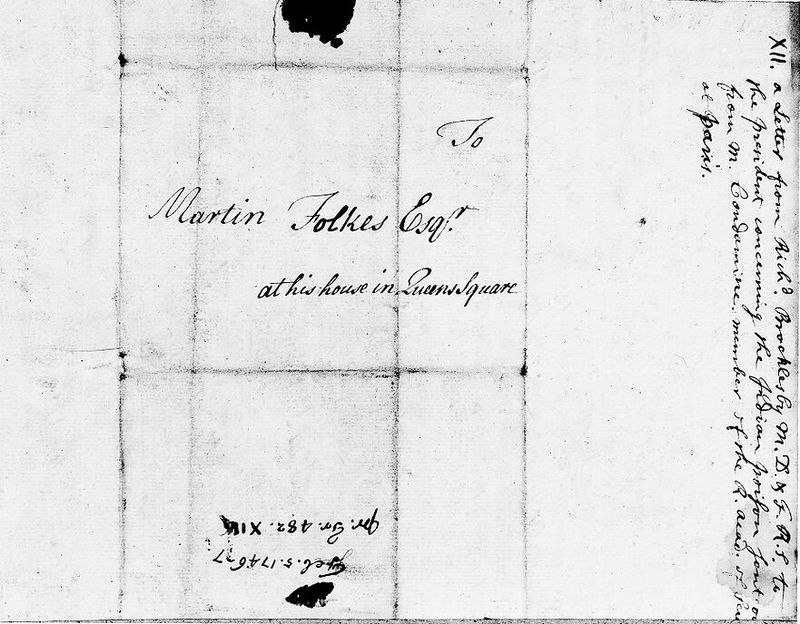 To
Martin Folkes Esqr.
at his house in Queens Square
XII. a Letter from Richd. Brocklesby M.D. & F.R.S. to
the president concerning the Indian poison sent
from M. Condamine, member of the R. Acad. of
at paris.
Feb. 5. 1746-7
Tr. 482. XII